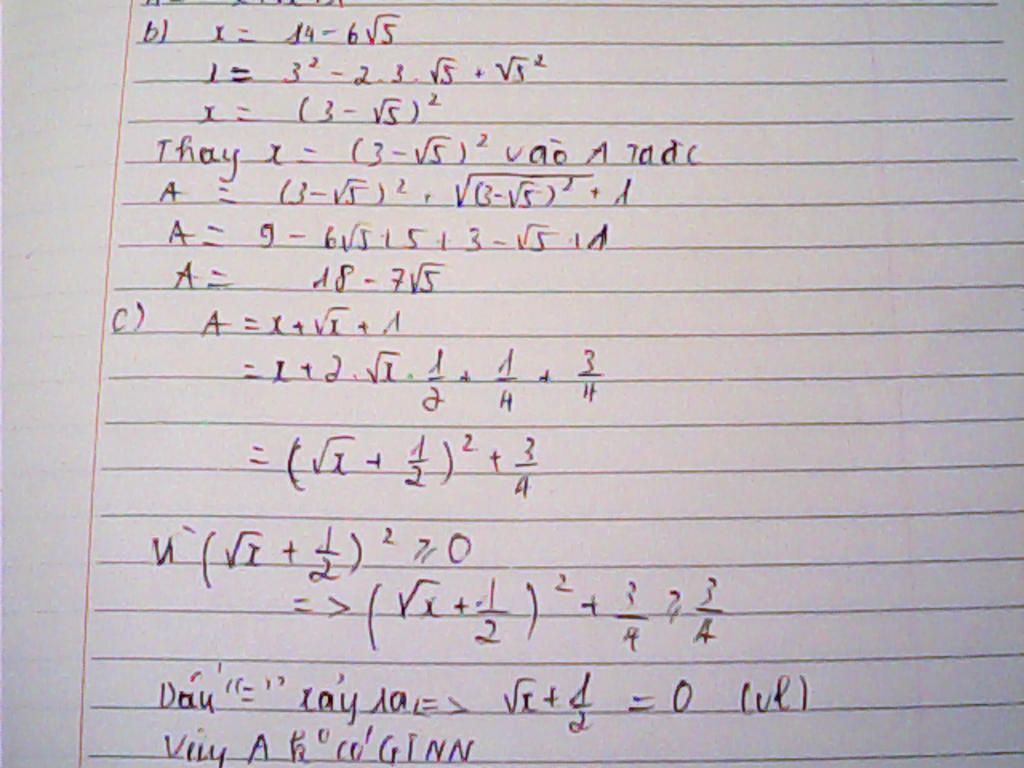 b) x = 14 - 6√5
x = 3² - 2.3.√5 + √5²
x = (3 - √5)²
Thay x = (3 - √5)² vào A ta đc
A = (3-√5)² + √(3-√5)² + 1
A = 9 - 6√5 + 5 + 3 - √5 + 1
A = 18 - 7√5
c) A = x + √x + 1
= x + 2.√x.1/2 + 1/4 + 3/4
= (√x + 1/2)² + 3/4
Vì (√x + 1/2)² ≥ 0
=> (√x + 1/2)² + 3/4 ≥ 3/4
Dấu "=" xảy ra <=> √x + 1/2 = 0 (vl)
Vậy A k° có GTNN